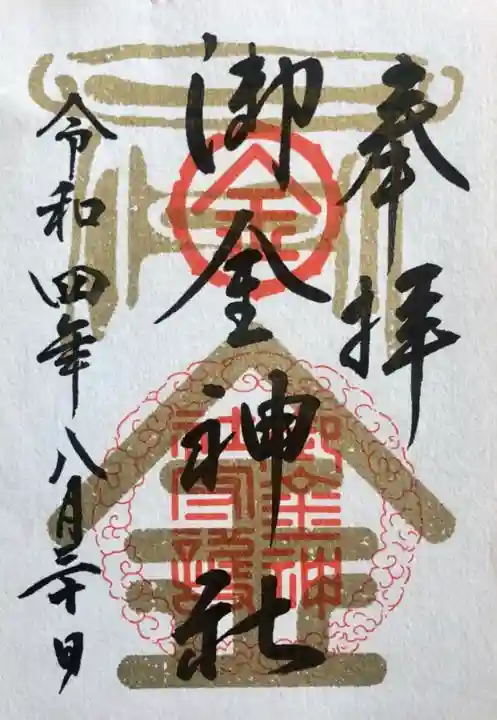 奉拝
御金神社
令和四年八月三十日
金
御金神
社之印